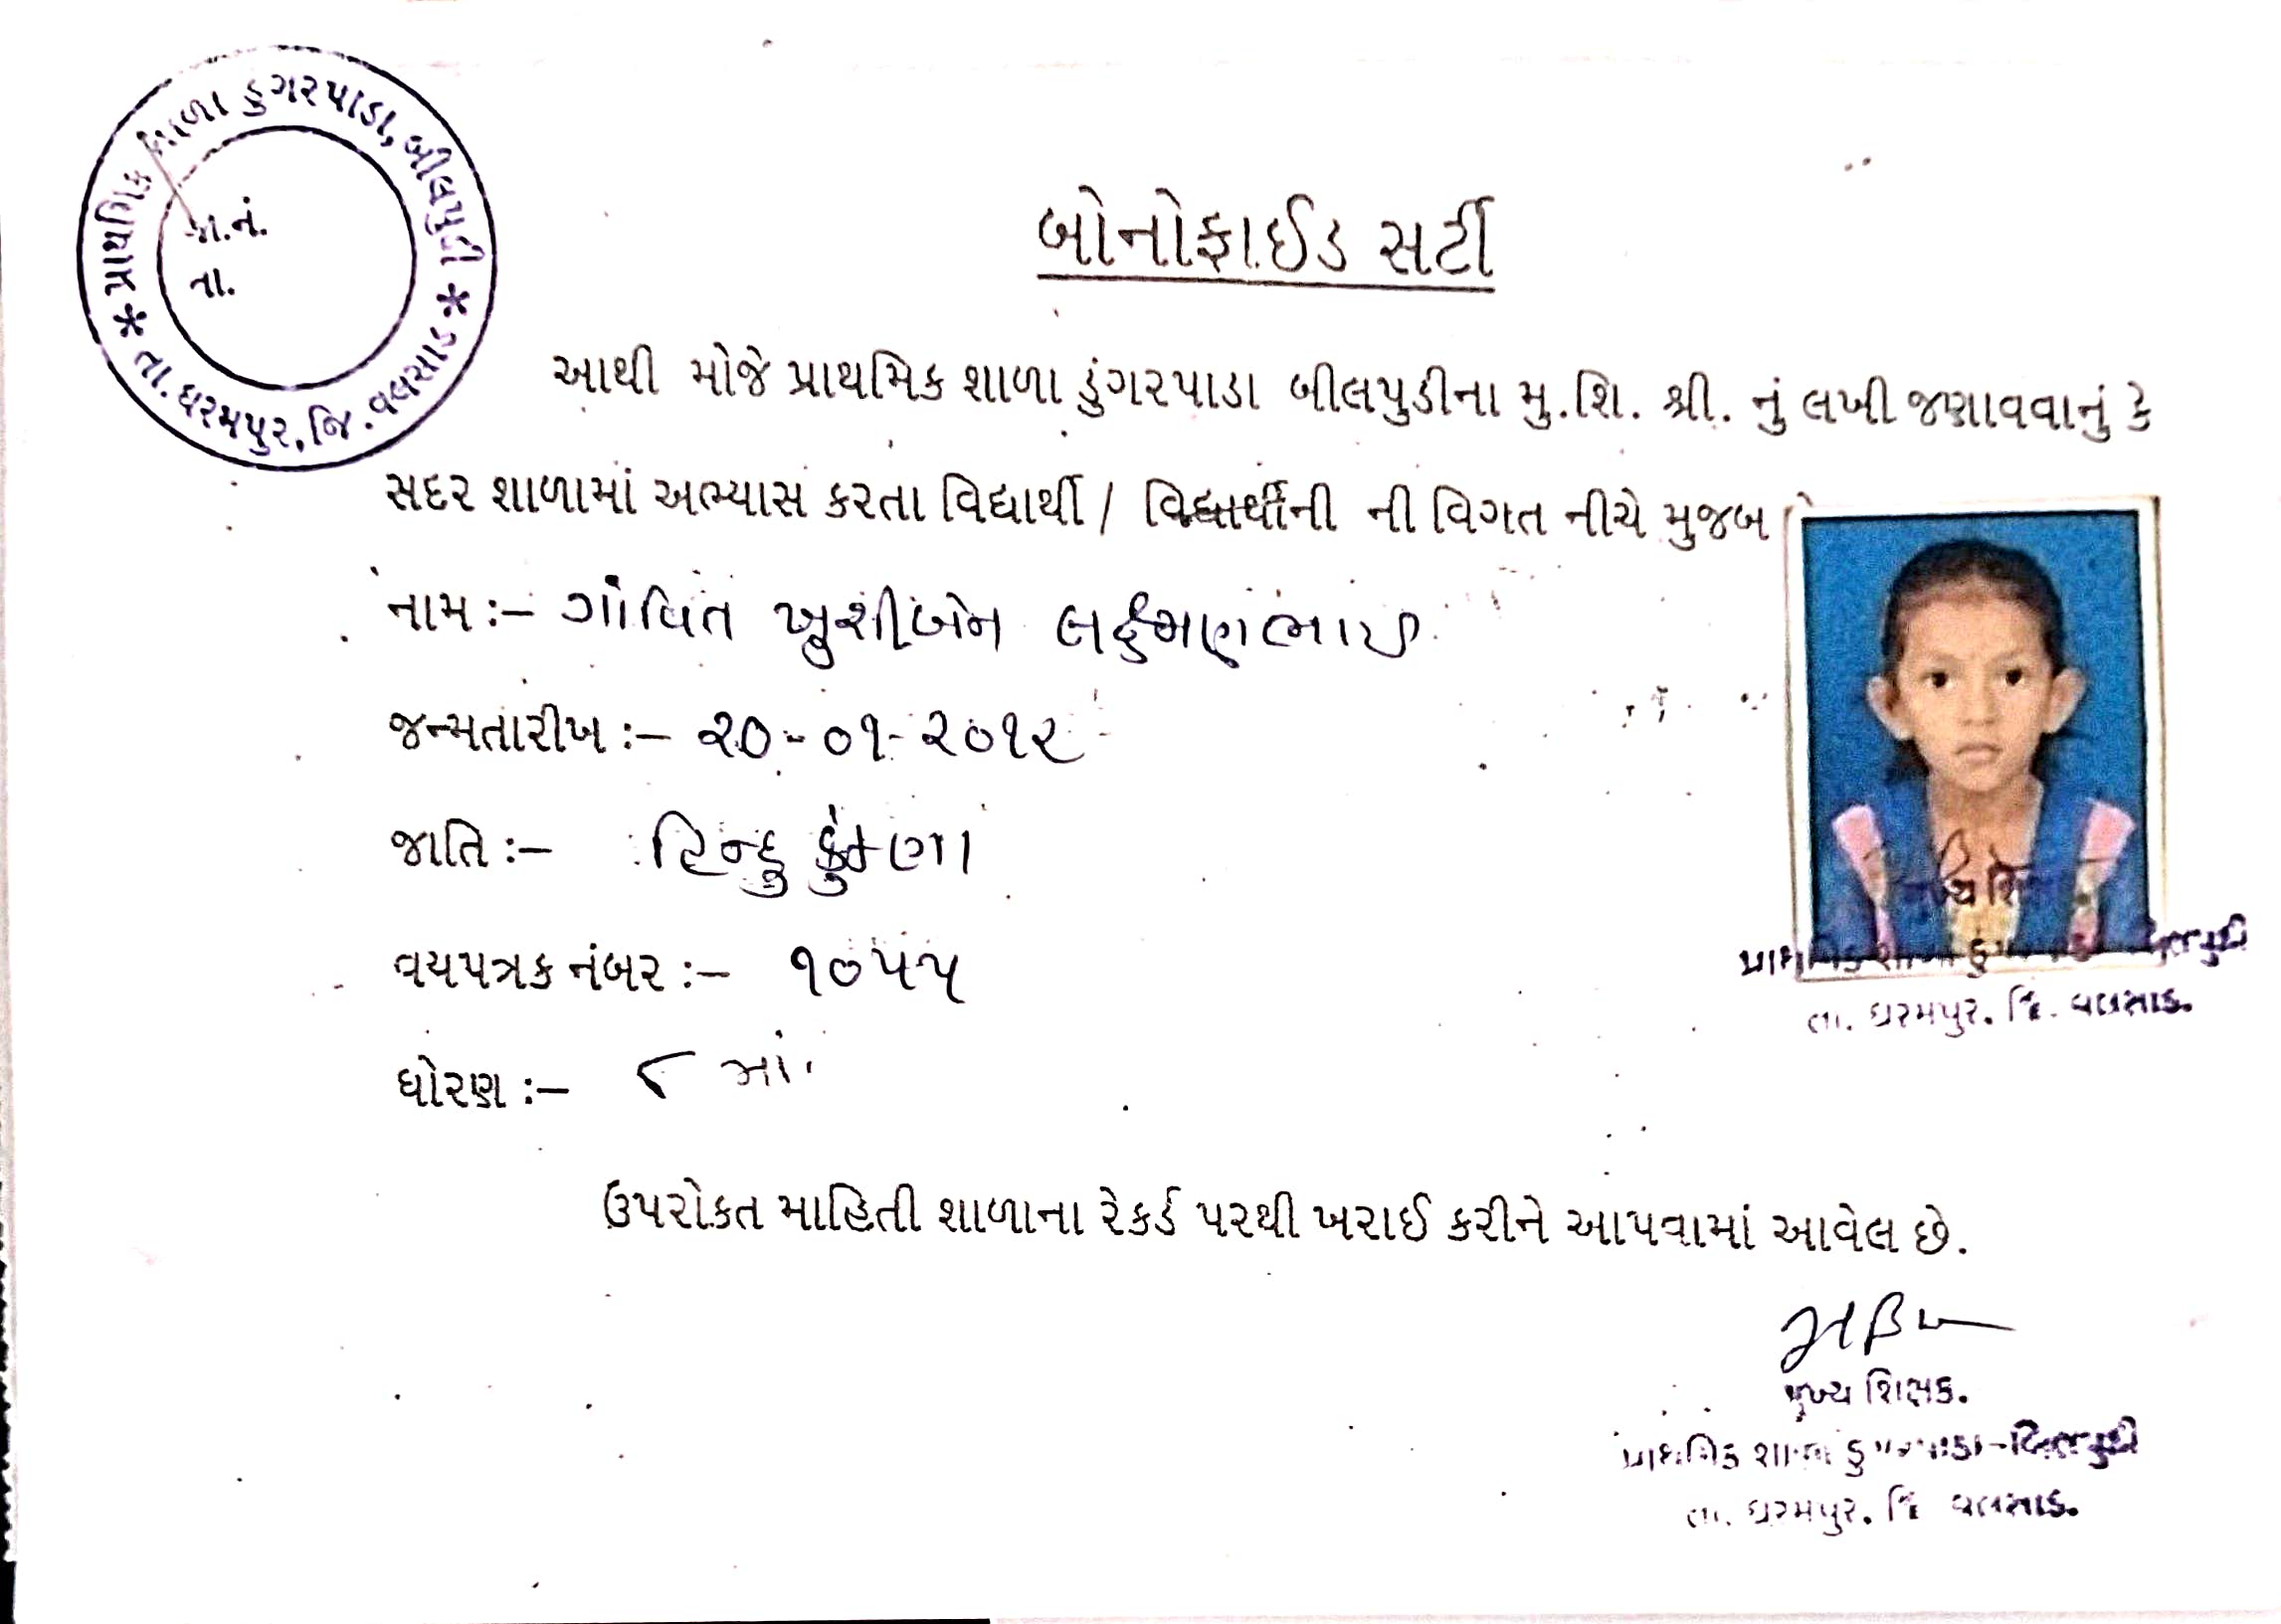 પ્રાથમિક શાળા ડુગરપાડા, બીલપુડી * તા. ધરમપુર, જિ. વલસાડ *
જા.નં.
તા.
બોનોફાઈડ સર્ટી
આથી મોજે પ્રાથમિક શાળા ડુંગરપાડા બીલપુડીના મુ.શિ. શ્રી. નું લખી જણાવવાનું કે
સદર શાળામાં અભ્યાસ કરતા વિદ્યાર્થી / વિદ્યાર્થીની ની વિગત નીચે મુજબ
નામ :- ગાંવિત ખુશીબેન લક્ષ્મણભાઈ
જન્મતારીખ :- ૨૦-૦૧-૨૦૧૨
જાતિ :- હિન્દુ કુંકણા
વયપત્રક નંબર :- ૧૦૫૫
ધોરણ :- ૮ માં
તા. ધરમપુર. જિ. વલસાડ.
ઉપરોકત માહિતી શાળાના રેકર્ડ પરથી ખરાઈ કરીને આપવામાં આવેલ છે.
મુખ્ય શિક્ષક.
પ્રાથમિક શાળા
તા. ધરમપુર. જિ વલસાડ.